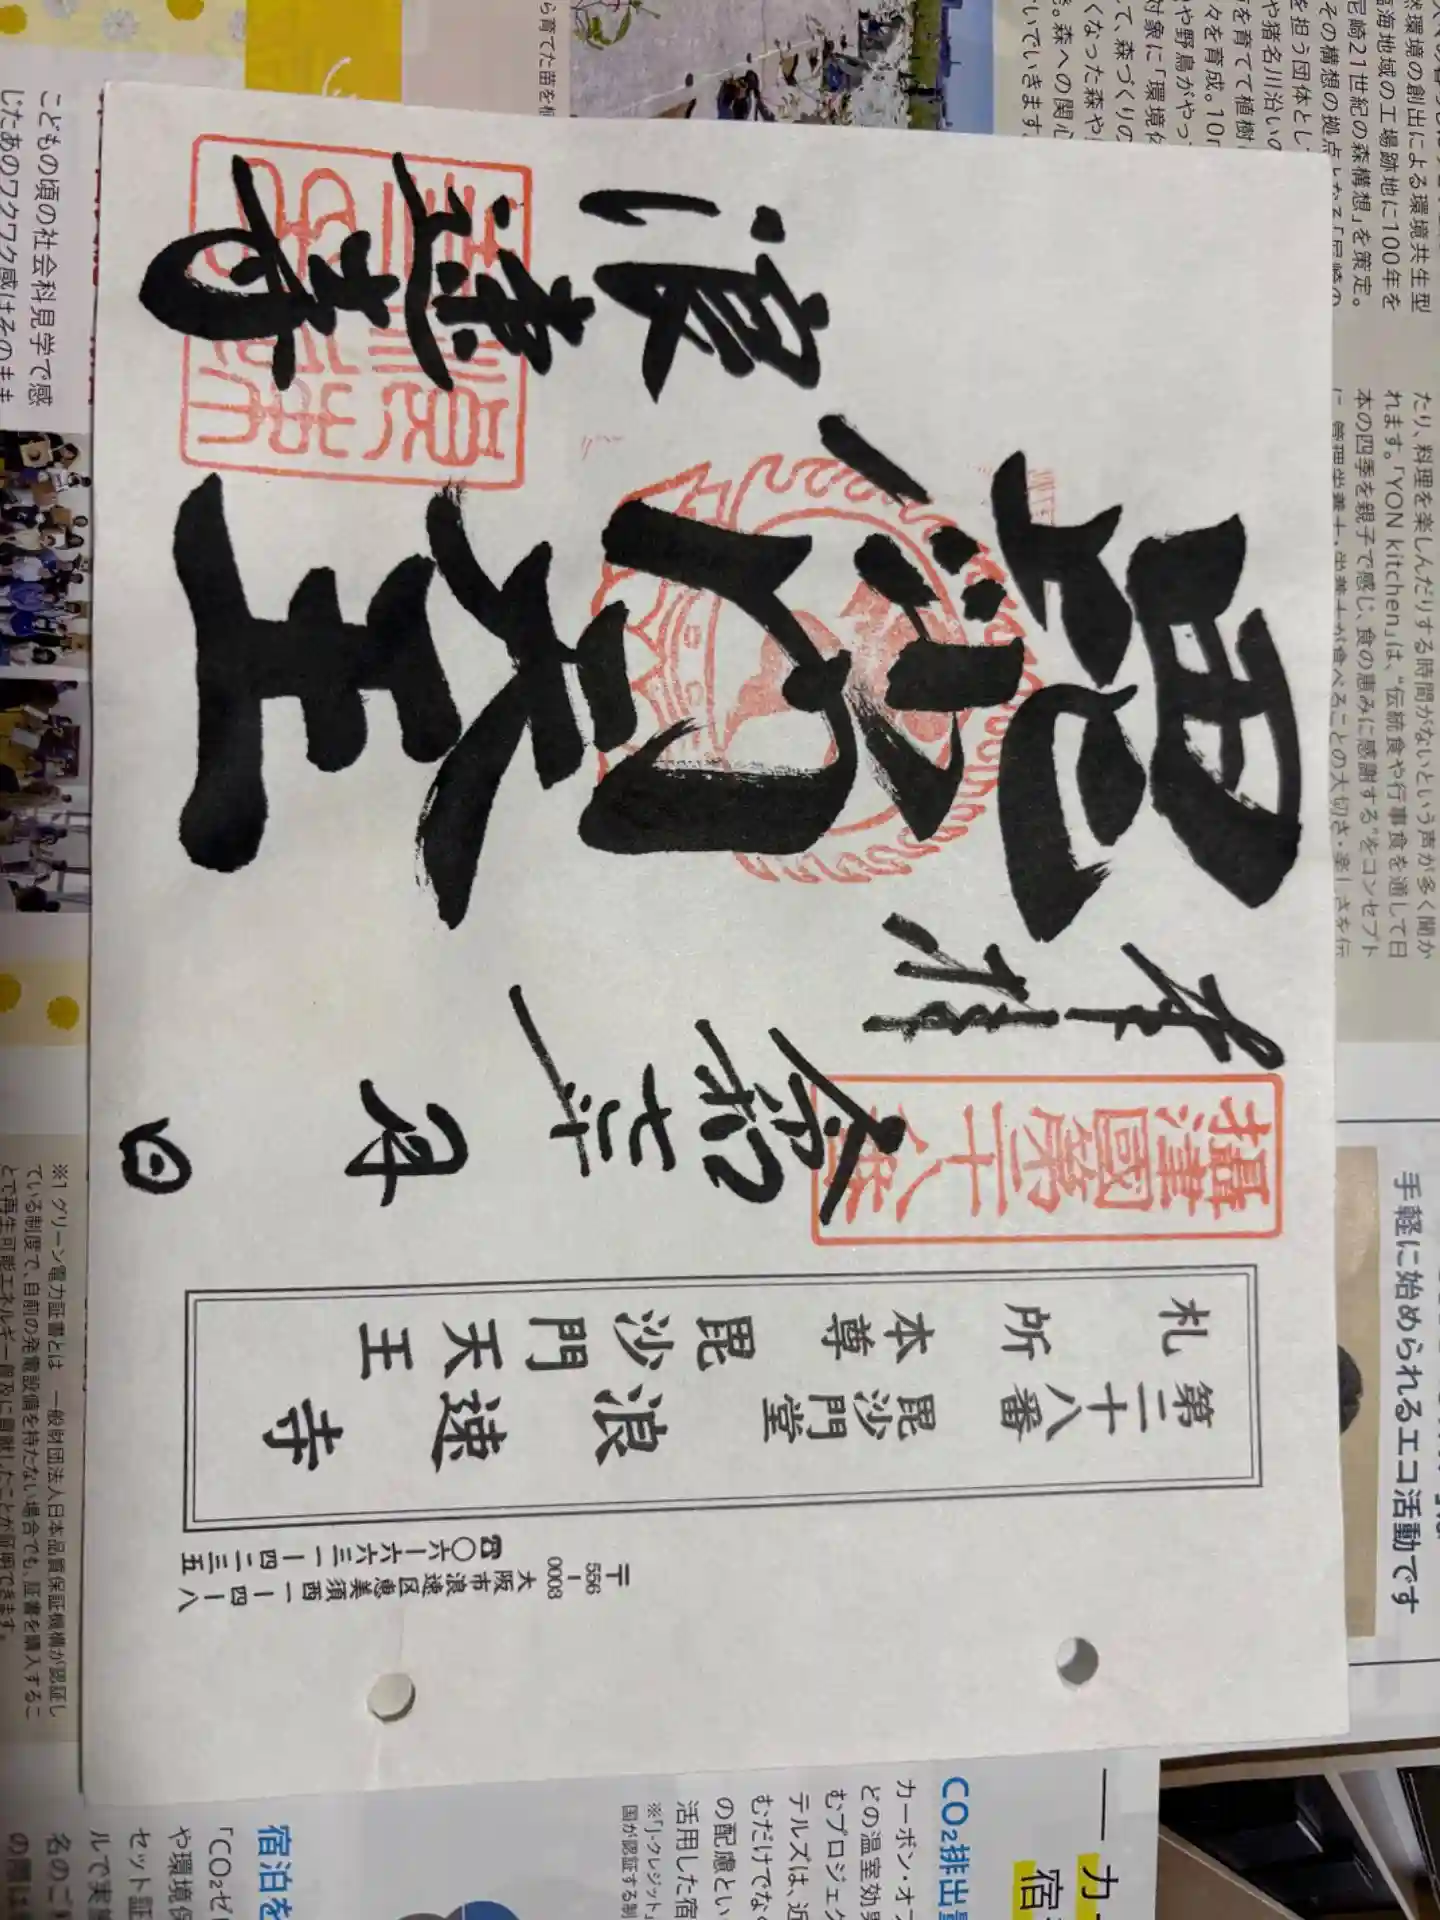 〒556-0003
大阪市浪速区恵美須西一-四-八
☎〇六-六六三一-四二三五
第二十八番 毘沙門堂 浪速寺
札所 本尊 毘沙門天王
攝津國第二十八番
奉拝
令和七年 月 日
毘沙門天王
浪速寺
然環境の創出による環境共生型
臨海地域の工場跡地に100年を
尼崎21世紀の森構想」を策定。
その構想の拠点となる「尼崎の
を担う団体とし
や猪名川沿いの
を育てて植樹
々を育成。10
や野鳥がやっ
対象に「環境体
て、森づくりの
くなった森や
。森への関心
いでいきます
ら育てた苗を植
こどもの頃の社会科見学で感
じたあのワクワク感はそのまま
たり、料理を楽しんだりする時間がないという声が多く聞か
れます。「YON kitchen」は、“伝統食や行事食を通して日
本の四季を親子で感じ、食の恵みに感謝する”をコンセプト
に、管理栄養士・栄養士が食べることの大切さ・楽しさを伝
手軽に始められるエコ活動です
※1 グリーン電力証書とは 一般財団法人日本品質保証機構が認証し
ている制度で、自前の発電設備を持たない場合でも、証書を購入するこ
とで再生可能エネルギー普及に貢献したことが証明できます。
CO₂排出量
カーボン・オフ
どの温室効果
むプロジェク
テルズは、近
むだけでな
の配慮とい
活用した宿
※「J-クレジット」
国が認証する制
宿泊を
「CO₂ゼ
や環境保
セット証
ルで実施
名のご